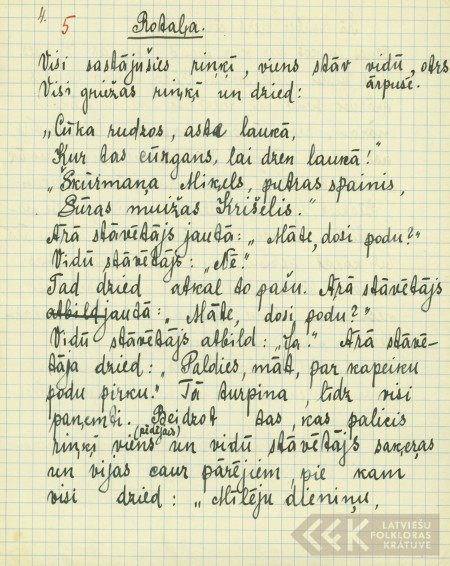 4.
5
Rotaļa.
Visi sastājušies riņķī, viens stāv vidū, otrs
Visi griežas riņķī un dzied: ārpusē.
„Cūka rudzos, aste laukā,
Kur tas cūkgans, lai dzen laukā!"
„Skūrmaņa Miķels, putras spainis,
Sūras muižas Krišelis."
Ārā stāvētājs jautā: „Māte, dosi podu?"
Vidū stāvētājs: „Nē."
Tad dzied atkal to pašu. Ārā stāvētājs
atbild jautā: „Māte, dosi podu?"
Vidū stāvētājs atbild: „Ja." Ārā stāvē-
tāja dzied: „Paldies, māt, par kapeiku
podu pirku." Tā turpina, līdz visi
paņemti. Beidzot tas, kas palicis
(pēdējais)
riņķī viens un vidū stāvētājs saķeras
un vijas caur pārējiem, pie kam
visi dzied: „Mīlēju dieniņu,
LATVIEŠU
FOLKLORAS
KRĀTUVE